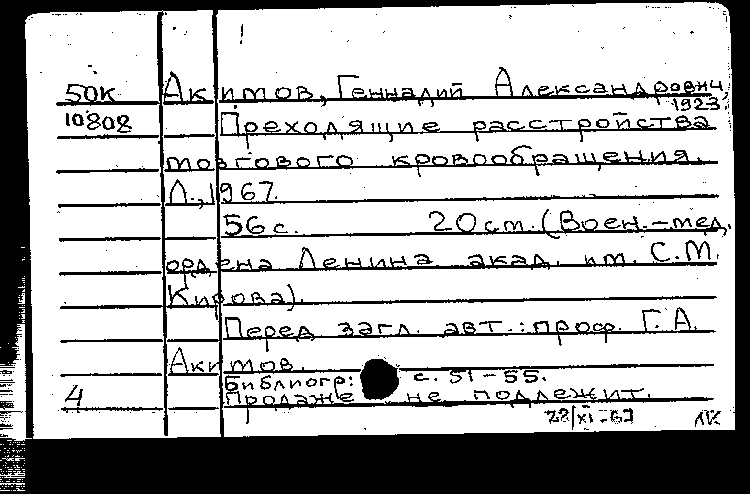 50К Акимов, Геннадий Александрович,
1923
10808 Преходящие расстройства
мозгового кровообращения.
Л., 1967.
56 с. 20 см. (Воен.-мед.
ордена Ленина акад. им. С.М.
Кирова).
Перед загл. авт.: проф. Г.А.
Акимов.
Библиогр: с. 51-55.
4 Продаже не подлежит.
28/XI-67